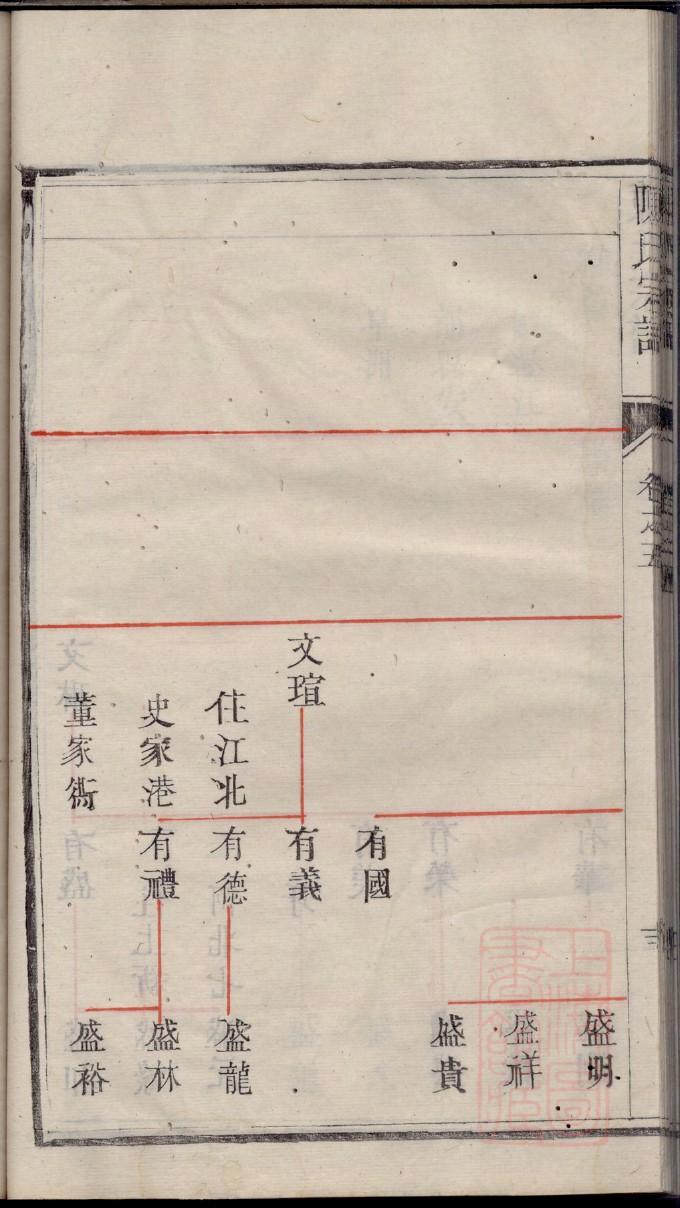 陳氏宗譜
卷之五
三
盛明
盛祥
盛貴
有國
文瑄
有義
住江北
有德
盛龍
史家港
有禮
盛林
董家衖
盛裕